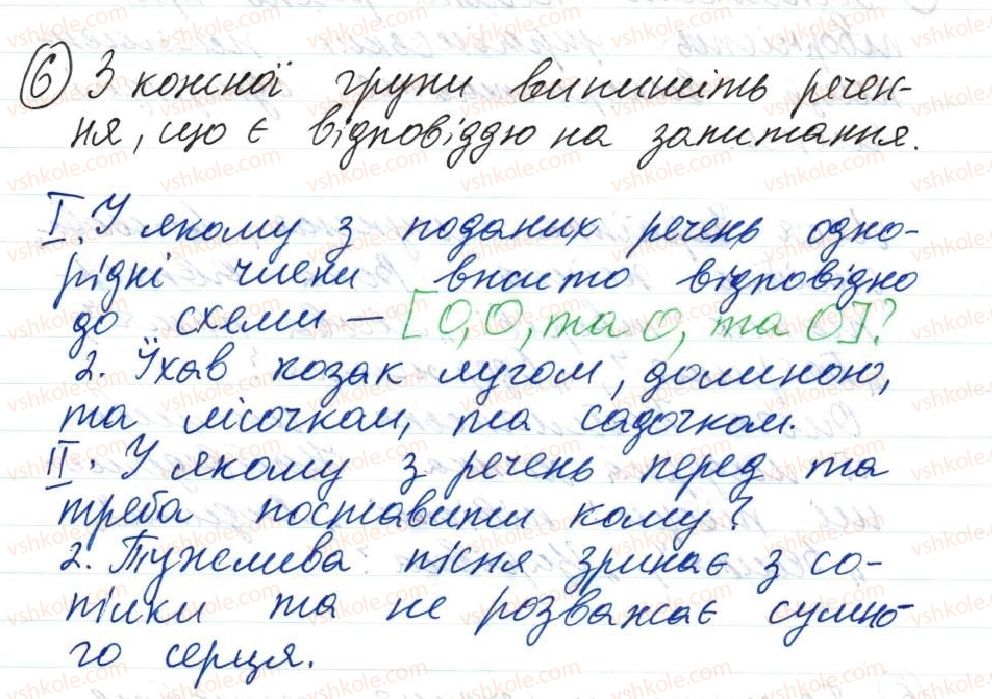 6 З кожної групи випишіть речен-
ня, що є відповіддю на запитання.
I. У якому з поданих речень одно-
рідні члени вжито відповідно
до схеми — [О, О, та О, та О]?
2. Їхав козак лугом, долиною,
та лісочком, та садочком.
II. У якому з речень перед та
треба поставити кому?
2. Тужлива пісня зринає з со-
пілки та не розважає сумно
го серця.